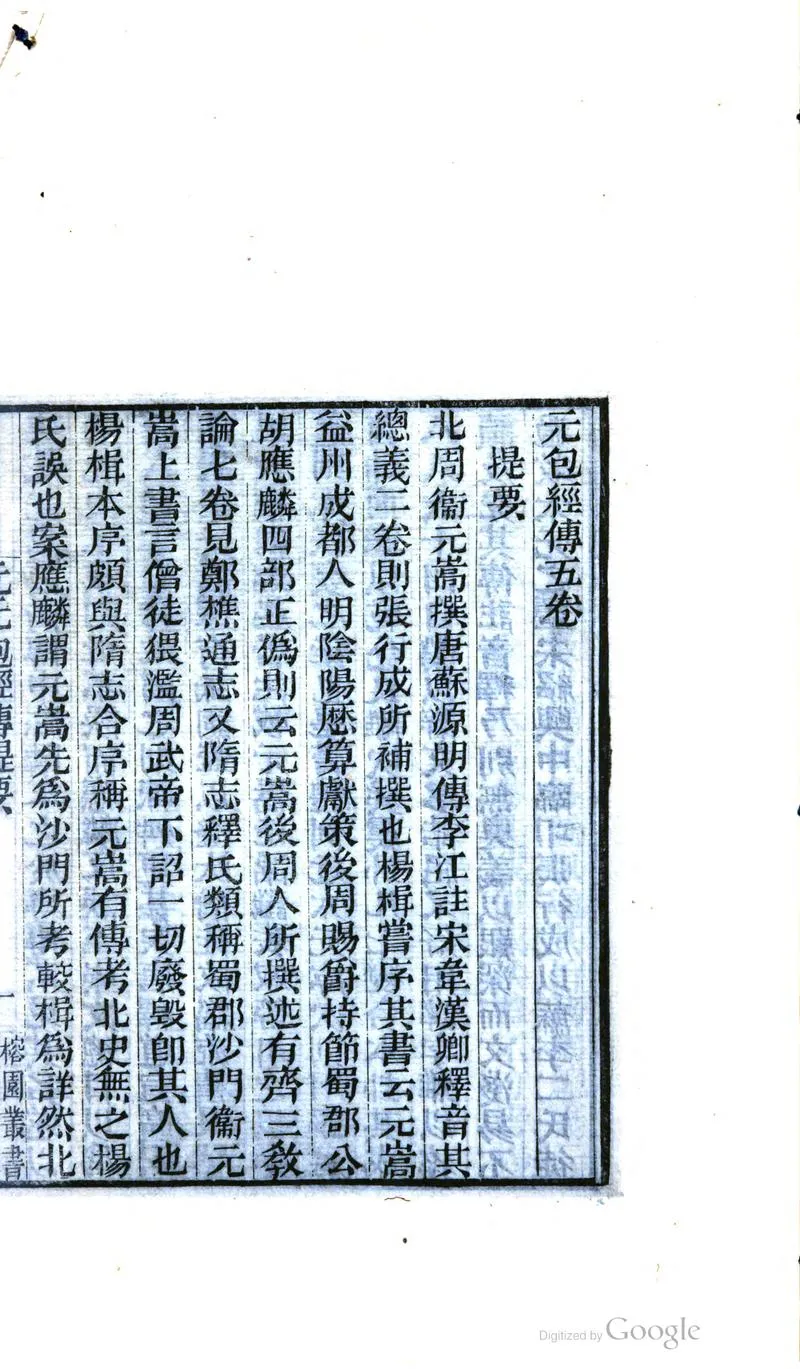 元包經傳五卷
提要
北周衞元嵩撰唐蘇源明傳李江註宋韋漢卿釋音其
總義二卷則張行成所補撰也楊楫嘗序其書云元嵩
益川成都人明陰陽厯算獻策後周賜爵持節蜀郡公
胡應麟四部正僞則云元嵩後周人所撰述有齊三敎
論七卷見鄭樵通志又隋志釋氏類稱蜀郡沙門衞元
嵩上書言僧徒猥濫周武帝下詔一切廢毁卽其人也
楊楫本序頗與隋志合序稱元嵩有傳考北史無之楊
氏誤也案應麟謂元嵩先爲沙門所考較楫爲詳然北
元包經傳提要
一
榕園叢書
Digitized by Google